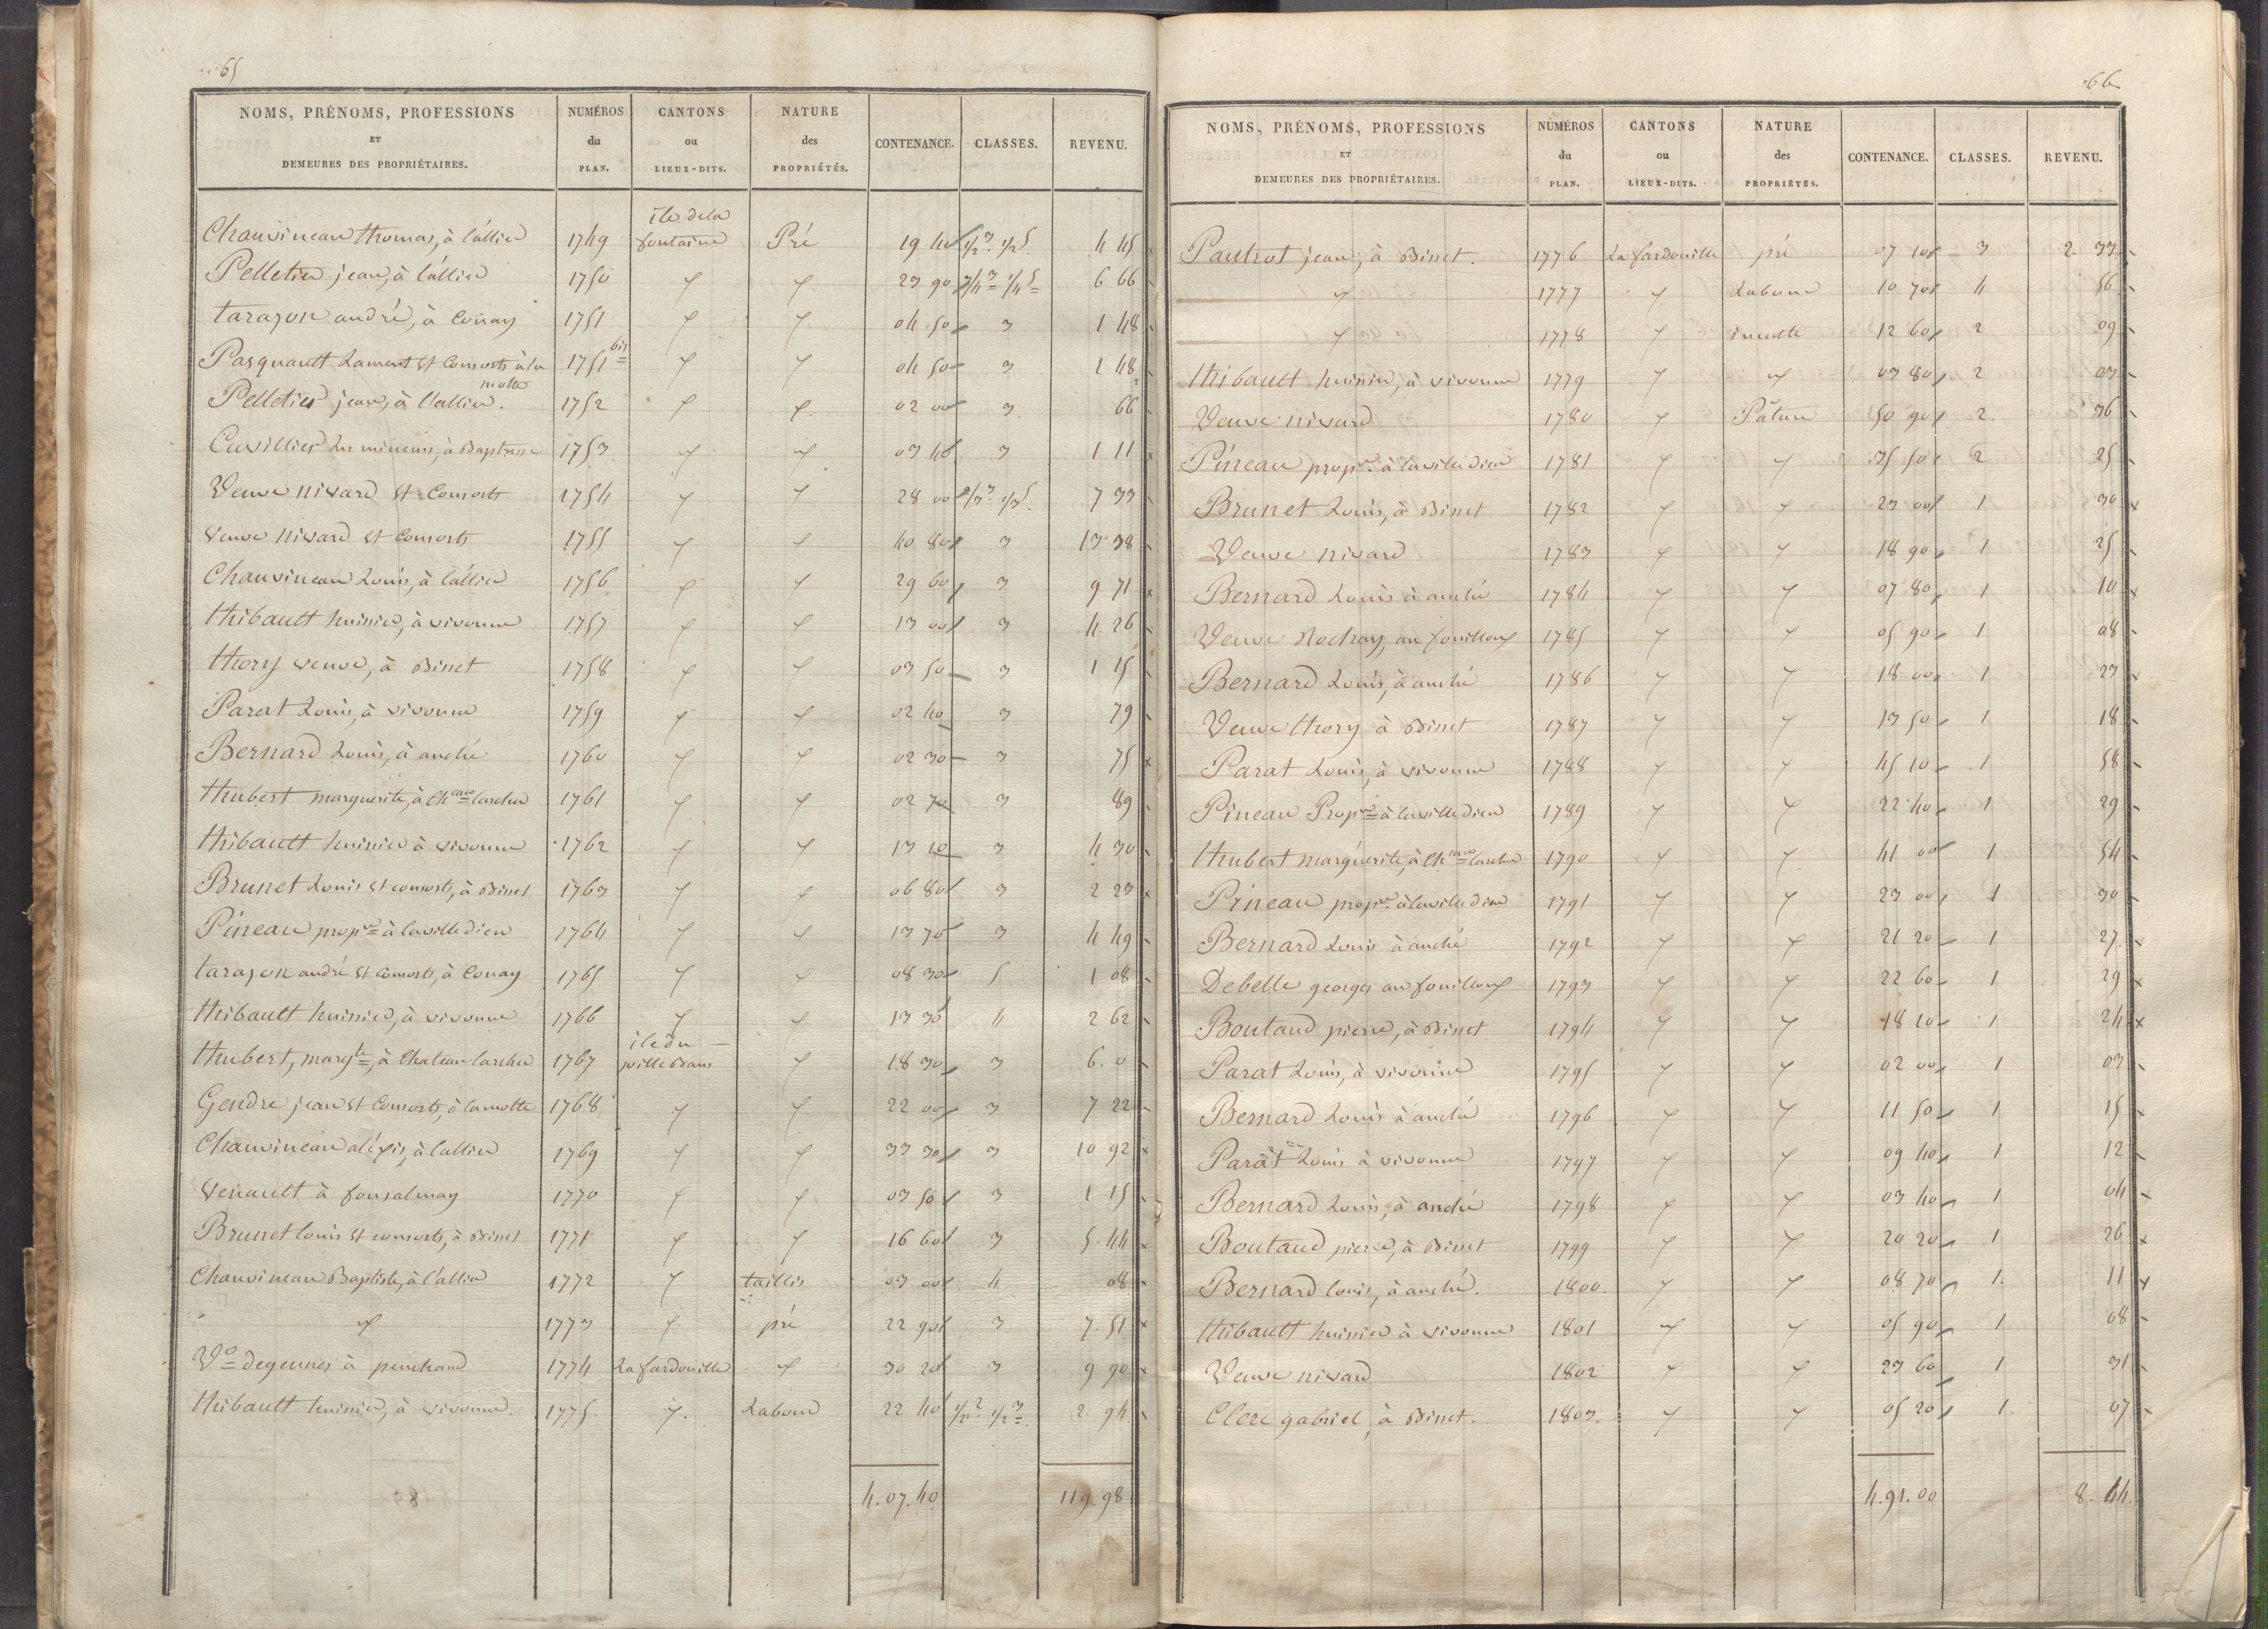 65
NOMS, PRÉNOMS, PROFESSIONS ET DEMEURES DES PROPRIÉTAIRES. | NUMÉROS du PLAN. | CANTONS ou LIEUX-DITS. | NATURE des PROPRIÉTÉS. | CONTENANCE. | CLASSES. | REVENU.
Chauvineau thomas, à l'allier 1749 île de la fontaine Pré 19 40 1/2 3. 1/2 5. 4 45
Pelletier jean, à l'allier 1750 〃 〃 23 90 3/4 3 1/4 5 6 66
tarazon andré, à Couay 1751 〃 〃 04 50 3 1 48
Pasquault Laurent et Consorts à la motte 1751 bis 〃 〃 04 50 3 1 48
Pelletier jean, à l'allier. 1752 〃 〃 02 00 3. 66
Cuvillier les mineurs, à Baptresse 1753 〃 〃 03 40 3 1 11
Veuve nivard et Consorts 1754 〃 〃 28 00 2/3 3. 1/3 5. 7 33
Veuve nivard et Consorts 1755 〃 〃 40 80 3 13 38
Chauvineau Louis, à l'allier 1756 〃 〃 29 60 3 9 71
thibault huissier, à vivonne 1757 〃 〃 13 00 3 4 26
thory veuve, à Binet 1758 〃 〃 03 50 3 1 15
Parat Louis, à vivonne 1759 〃 〃 02 40 3 79
Bernard Louis, à anché 1760 〃 〃 02 30 3 75
thubert marguerite, à Cheau larcher 1761 〃 〃 02 70 3 89
thibault huissier à vivonne 1762 〃 〃 13 10 3 4 30
Brunet Louis et consorts, à Binet 1763 〃 〃 06 80 3 2 23
Pineau propre à lavilledieu 1764 〃 〃 13 70 3 4 49
tarazon andré et Consorts, à Couay 1765 〃 〃 08 30 5 1 08
thibault huissier, à vivonne 1766 〃 〃 13 30 4 2 62
thubert, margte, à Chateau larcher 1767 île du 〃 18 30 3 6. 0
Gendre jean et Consorts, à la motte 1768 〃 〃 22 00 3 7 22
Chauvineau aléxis, à l'allier 1769 〃 〃 33 30 3 10 92
Venault à fonsalmay 1770 〃 〃 03 50 3 1 15
Brunet louis et consorts, à Binet 1771 〃 〃 16 60 3 5. 44
Chauvineau Baptiste, à l'allier 1772 〃 taillis 03 00 4 08
〃 1773 〃 pré 22 90 3 7. 51
Ve degennes à 1774 La fardouille 〃 30 20 3 9 90
thibault huissier, à vivonne. 1775. 〃. Labour 22 40 1/2 2 1/2 3 2. 94
4. 07. 40 119. 98
66
NOMS, PRÉNOMS, PROFESSIONS ET DEMEURES DES PROPRIÉTAIRES. | NUMÉROS du PLAN. | CANTONS ou LIEUX-DITS. | NATURE des PROPRIÉTÉS. | CONTENANCE. | CLASSES. | REVENU.
Pautrot jean, à Binet. 1776 La fardouille pré 07 10 3 2. 33
〃 1777 〃 Labour 10 70 4 56
〃 1778 〃 inculte 12 60 2 09
thibault huissier, à vivonne 1779 〃 〃 03 80 2 03
Veuve nivard 1780 〃 Pâture 50 90 2 36
Pineau propre. à lavilledieu 1781 〃 〃 35 50 2 25
Brunet Louis, à Binet 1782 〃 〃 23 00 1 30
Veuve nivard 1783 〃 〃 18 90 1 25
Bernard Louis à anché 1784 〃 〃 07 80 1 10
Veuve Rochay, au fouilloux 1785 〃 〃 05 90 1 08
Bernard Louis, à anché 1786 〃 〃 18 00 1 23
Veuve thory à Binet 1787 〃 〃 13 50 1 18
Parat Louis, à vivonne 1788 〃 〃 45 10 1 58
Pineau Propre à lavilledieu 1789 〃 〃 22 40 1 29
thubert marguerite, à Cheau larcher 1790 〃 〃 41 00 1 54
Pineau propre. à lavilledieu 1791 〃 〃 23 00 1 30
Bernard Louis à anché 1792 〃 〃 21 20 1 27.
Debelle georges au fouilloux 1793 〃 〃 22 60 1 29
Boutaud pierre, à Binet 1794 〃 〃 18 10 1 24
Parat Louis, à vivonne 1795 〃 〃 02 00 1 03
Bernard Louis à anché 1796 〃 〃 11 50 1 15
Parat Louis à vivonne 1797 〃 〃 09 40 1 12
Bernard Louis, à anché 1798 〃 〃 03 40 1 04
Boutaud pierre, à Binet 1799 〃 〃 20 20 1 26
Bernard louis, à anché. 1800. 〃 〃 08 70 1. 11
thibault huissier à vivonne 1801 〃 〃 05 90 1 08
Veuve nivard 1802 〃 〃 23 60 1 31
Clerc gabriel, à Binet. 1803. 〃 〃 05 20 1. 07
4. 91. 00 8. 44.